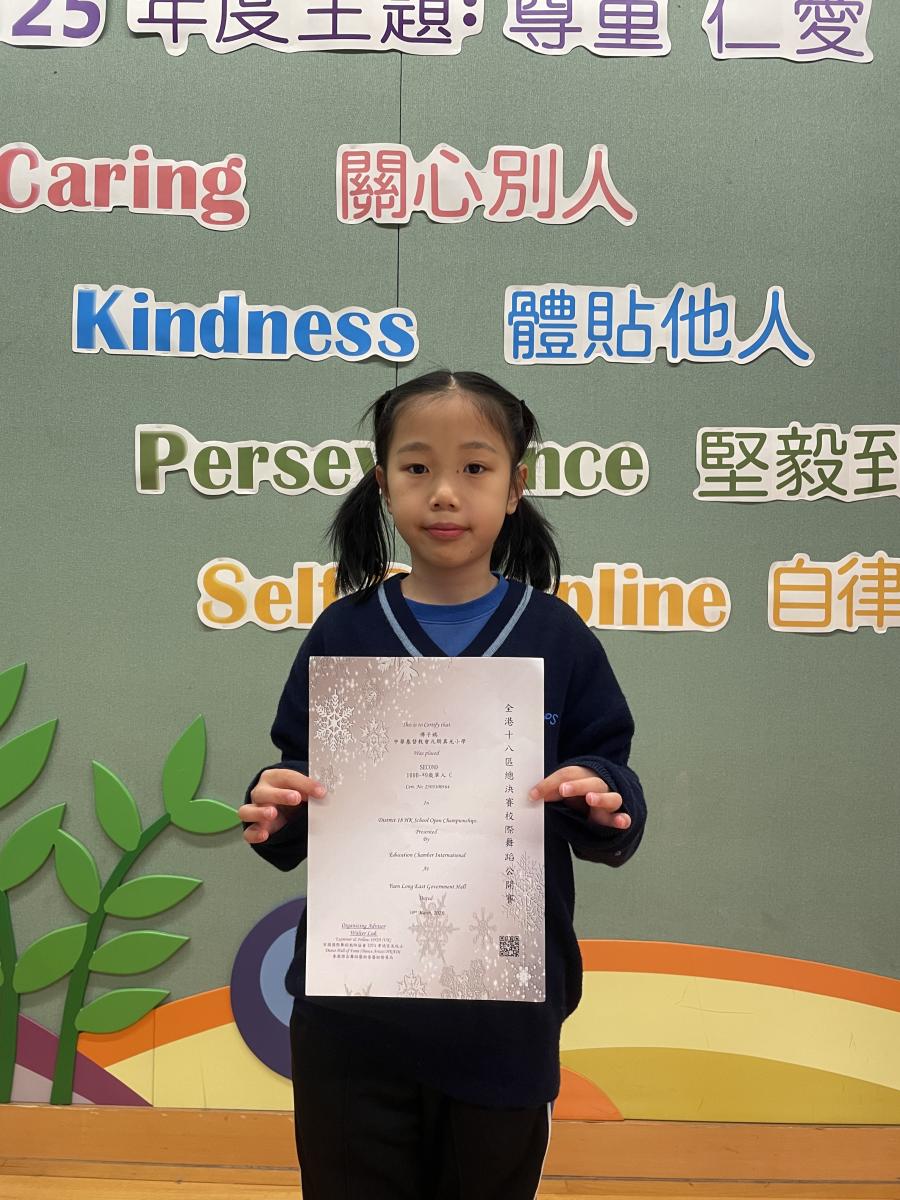 25 年度主題: 尊重 仁愛
Caring 關心別人
Kindness 體貼他人
Perseve nce 堅毅到
Self- pline 自律
全港十八區總決賽校際舞蹈公開賽
This is to Certify that
中華基督教會元朗真光小學
Was placed
SECOND
In
District 18 HK School Open Championships
Presented
By
Education Chamber International
At
Yuen Long East Government Hall
Dated
Organising Adviser
Walter Luk